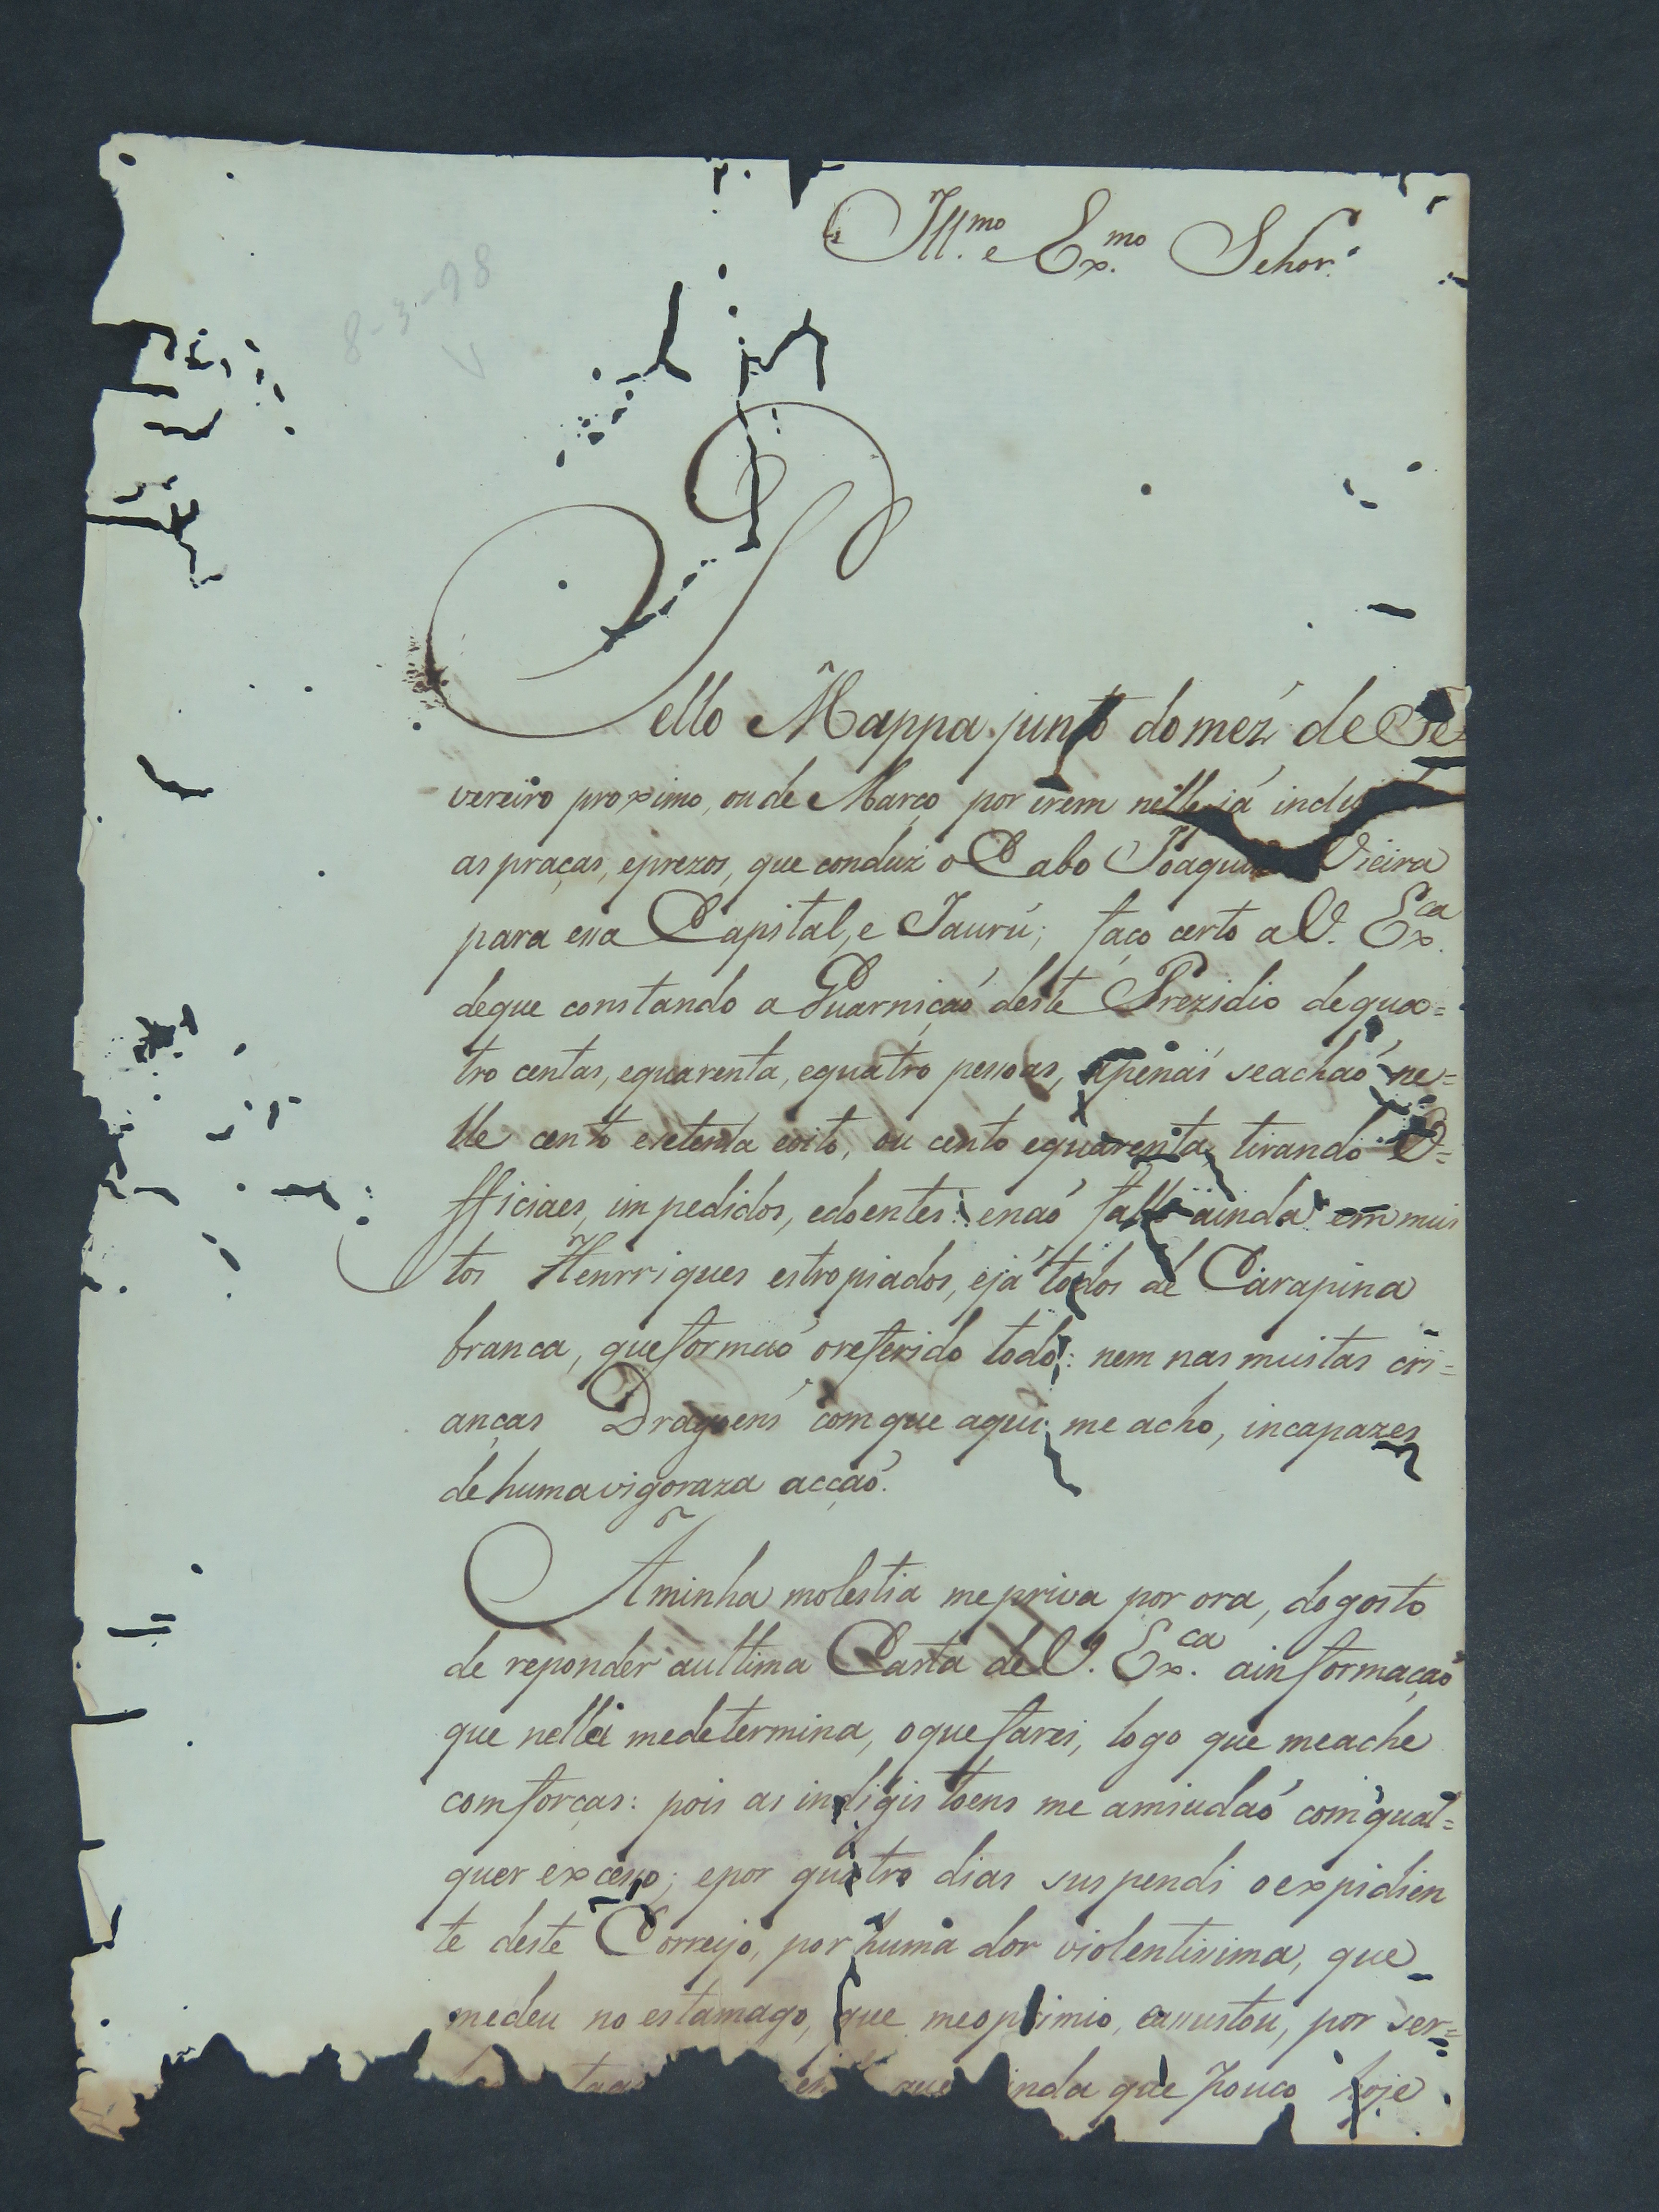 8-3-98
V
Ill.mo e Ex.mo Sehor.
Pello Mappa junto do mez de Fe
vereiro proximo, ou de Março por irem nelle já inclu
as praças, eprezos, que conduz o Cabo Joaquim Vieira
para essa Capital, e Jaurú; faço certo a V. Ex.ca
deque constando a Guarnição deste Prezidio dequa=
tro centas, equarenta, equatro pessoas, apenas seachaó ne=
lle cento esetenta eoito, ou cento equarenta, tirando O=
fficiaes, impedidos, edoentes: enaó fallo ainda em mui
tos Henrriques estropiados, ejá todos de Carapina
branca, queformaó oreferido todo: nem nas muitas cri=
anças Dragoens com que aqui me acho, incapazes
de huma vigoraza acçaó.
Aminha molestia mepriva por ora, dogosto
de reponder aultima Carta de V. Ex.ca ainformaçaó
que nella medetermina, oquefarei, logo que meache
comforças: pois as indigistoens me amiudaó com qual=
quer excesso; epor quatro dias suspendi oexpidien
te deste Correyo, por huma dor violentissima, que
medeu no estamago, que meoprimio, eassustou, por ser=
que inda que pouco hoje